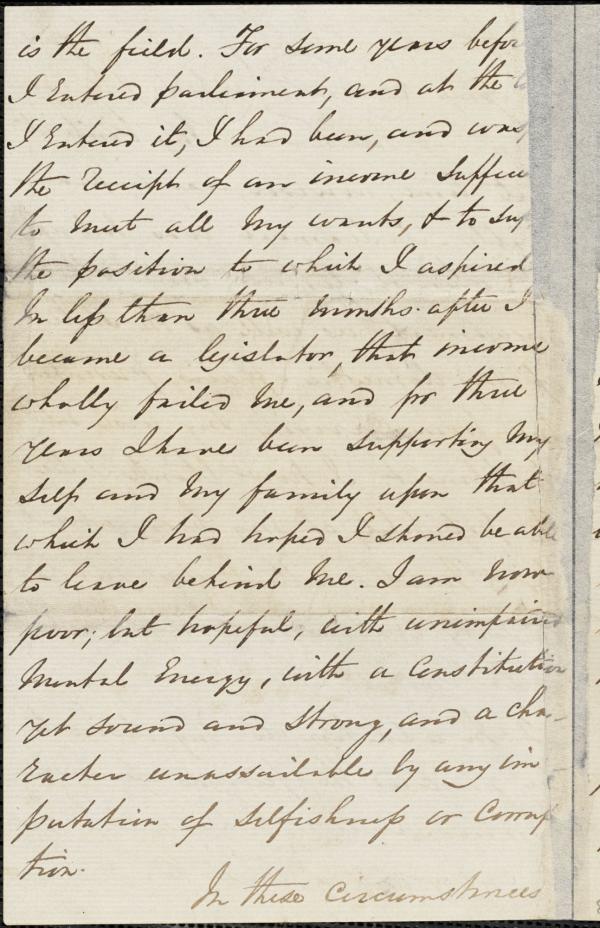 is the field. For some years befor
I Entered parliament, and at the
I Entered it, I had been, and was
the receipt of an income suffici
to meet all my wants, & to sup
the position to which I aspired
In less than three months after I
became a legislator, that income
wholly failed me, and for three
years I have been supporting my
self and my family upon that
which I had hoped I should be able
to leave behind me. I am now
poor; but hopeful, with unimpaired
Mental Energy, with a Constitution
yet sound and strong, and a cha-
racter unassailable by any im
putation of selfishness or Corrup
tion.
In these Circumstances